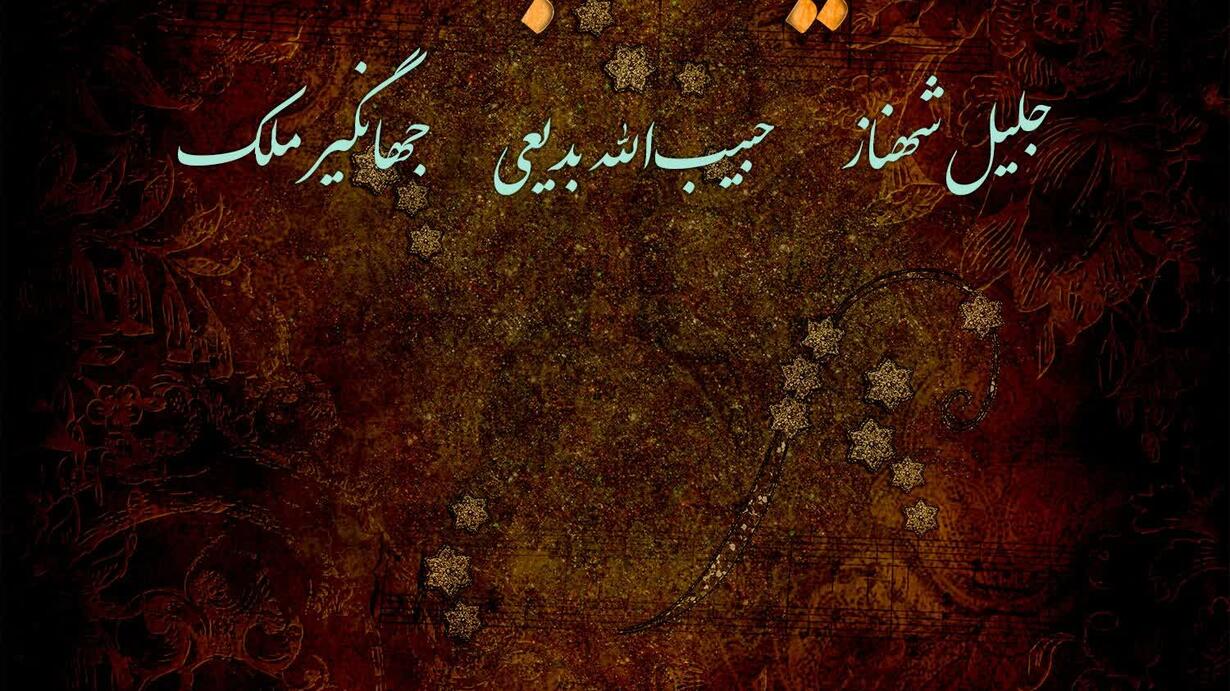 جلیل شهناز حبیب‌الله بدیعی جهانگیر ملک